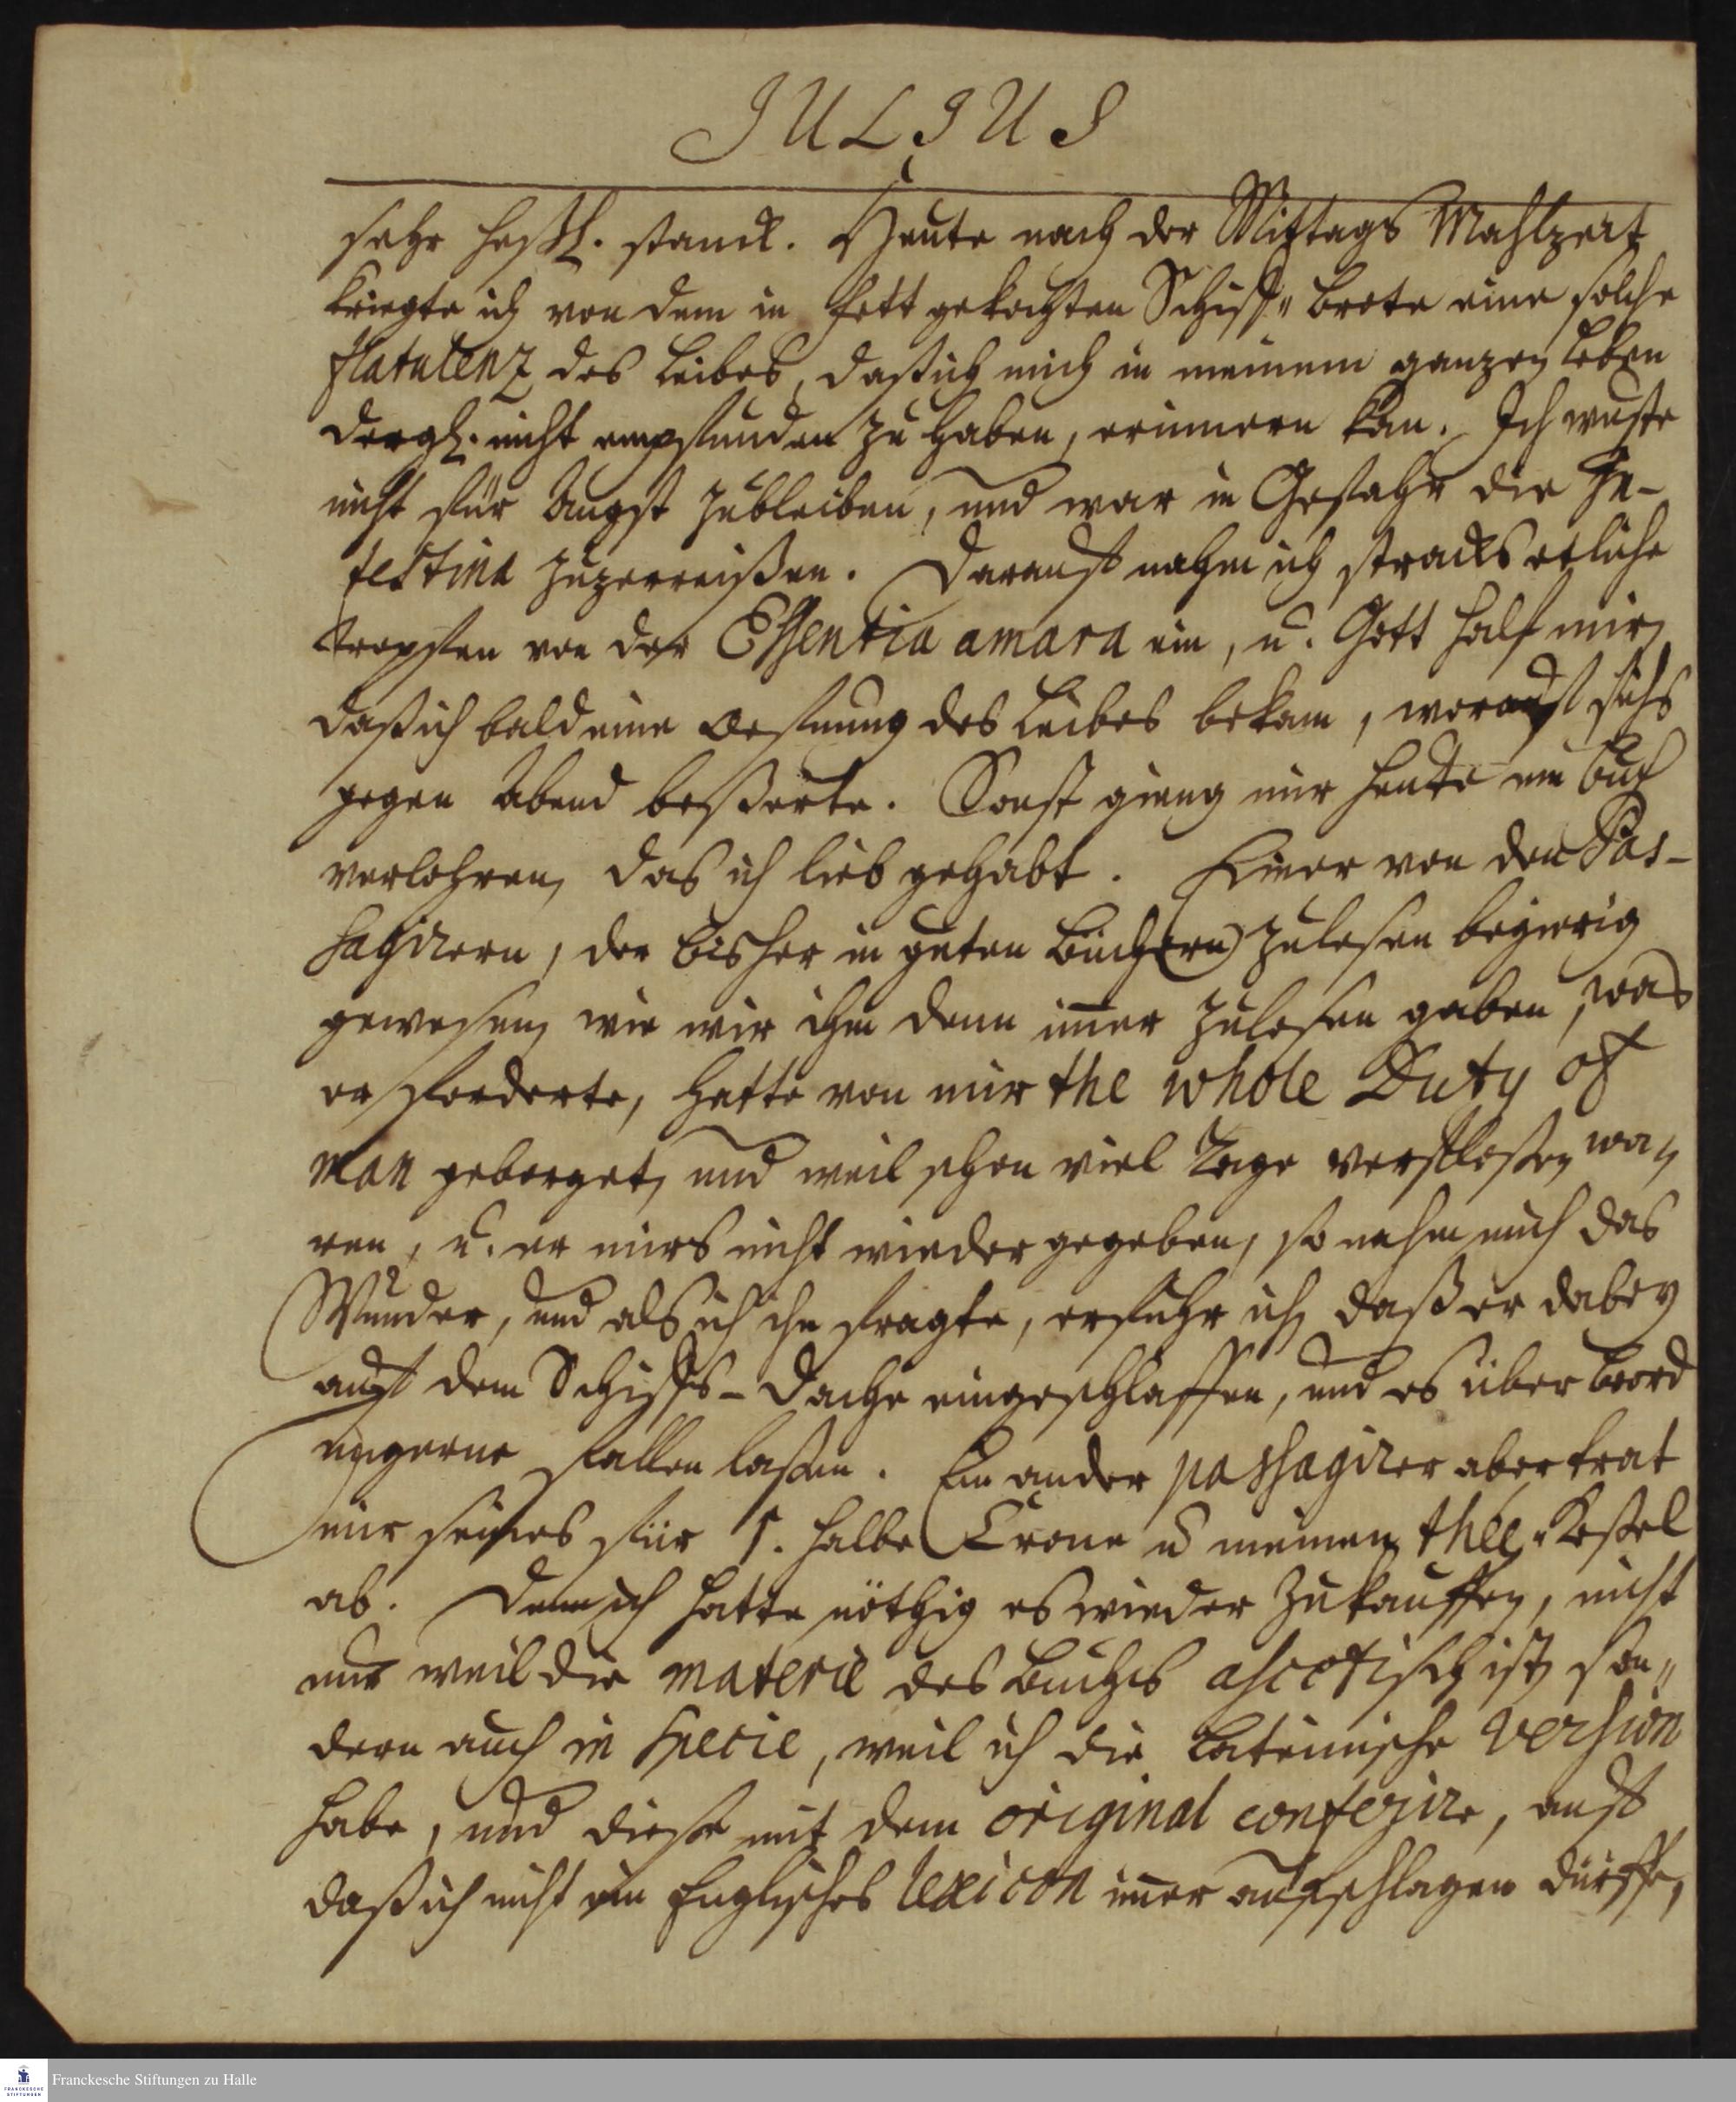 JULIUS
sehr heßl. stanck. Heute nach der Mittags Mahlzeit
kriegte ich von dem in Fett gekochten Schiff„brote eine solche
flatulenz des Leibes, daß ich mich in meinem ganzen Leben
dergl. nicht empfunden zu haben, erinnern kan. Ich wuste
nicht für Angst zubleiben, und war in Gefahr die In-
testina zuzerreißen. Darauff nahm ich stracks etliche
tropffen von der Essentia amara ein, u. Gott half mir,
daß ich bald eine Oefnung des Leibes bekam, worauff sichs
gegen Abend beßerte. Sonst gieng mir heute ein buch
verlohren, das ich lieb gehabt. Einer von den Pas-
sagirern, der bisher in guten Büch(ern) zulesen begierig
gewesen, wie wir ihm denn im̄er zulesen gaben, was
er forderte, hatte von mir the whole Duty of
man geborget, und weil schon viel Tage verfloßen wa,
ren, u. er mirs nicht wiedergegeben, so nahm mich das
Wunder, und als ich ihn fragte, erfuhr ich, daß er dabey
auff dem Schiffs-Dache eingeschlaffen, und es über boord
ungerne fallen laßen. Ein ander passagirer aber trat
mir seines für 1. halbe Crone u meinen thee„Keßel
ab. Denn ich hatte nöthig es wieder zukauffen, nicht
nur weil die materie des Buchs ascetisch ist, son„
dern auch in specie, weil ich die Lateinische Version
habe, und diese mit dem original conferire, auff
daß ich nicht ein Englisches lexicon im̄er aufschlagen dürffe,
Franckesche Stiftungen zu Halle